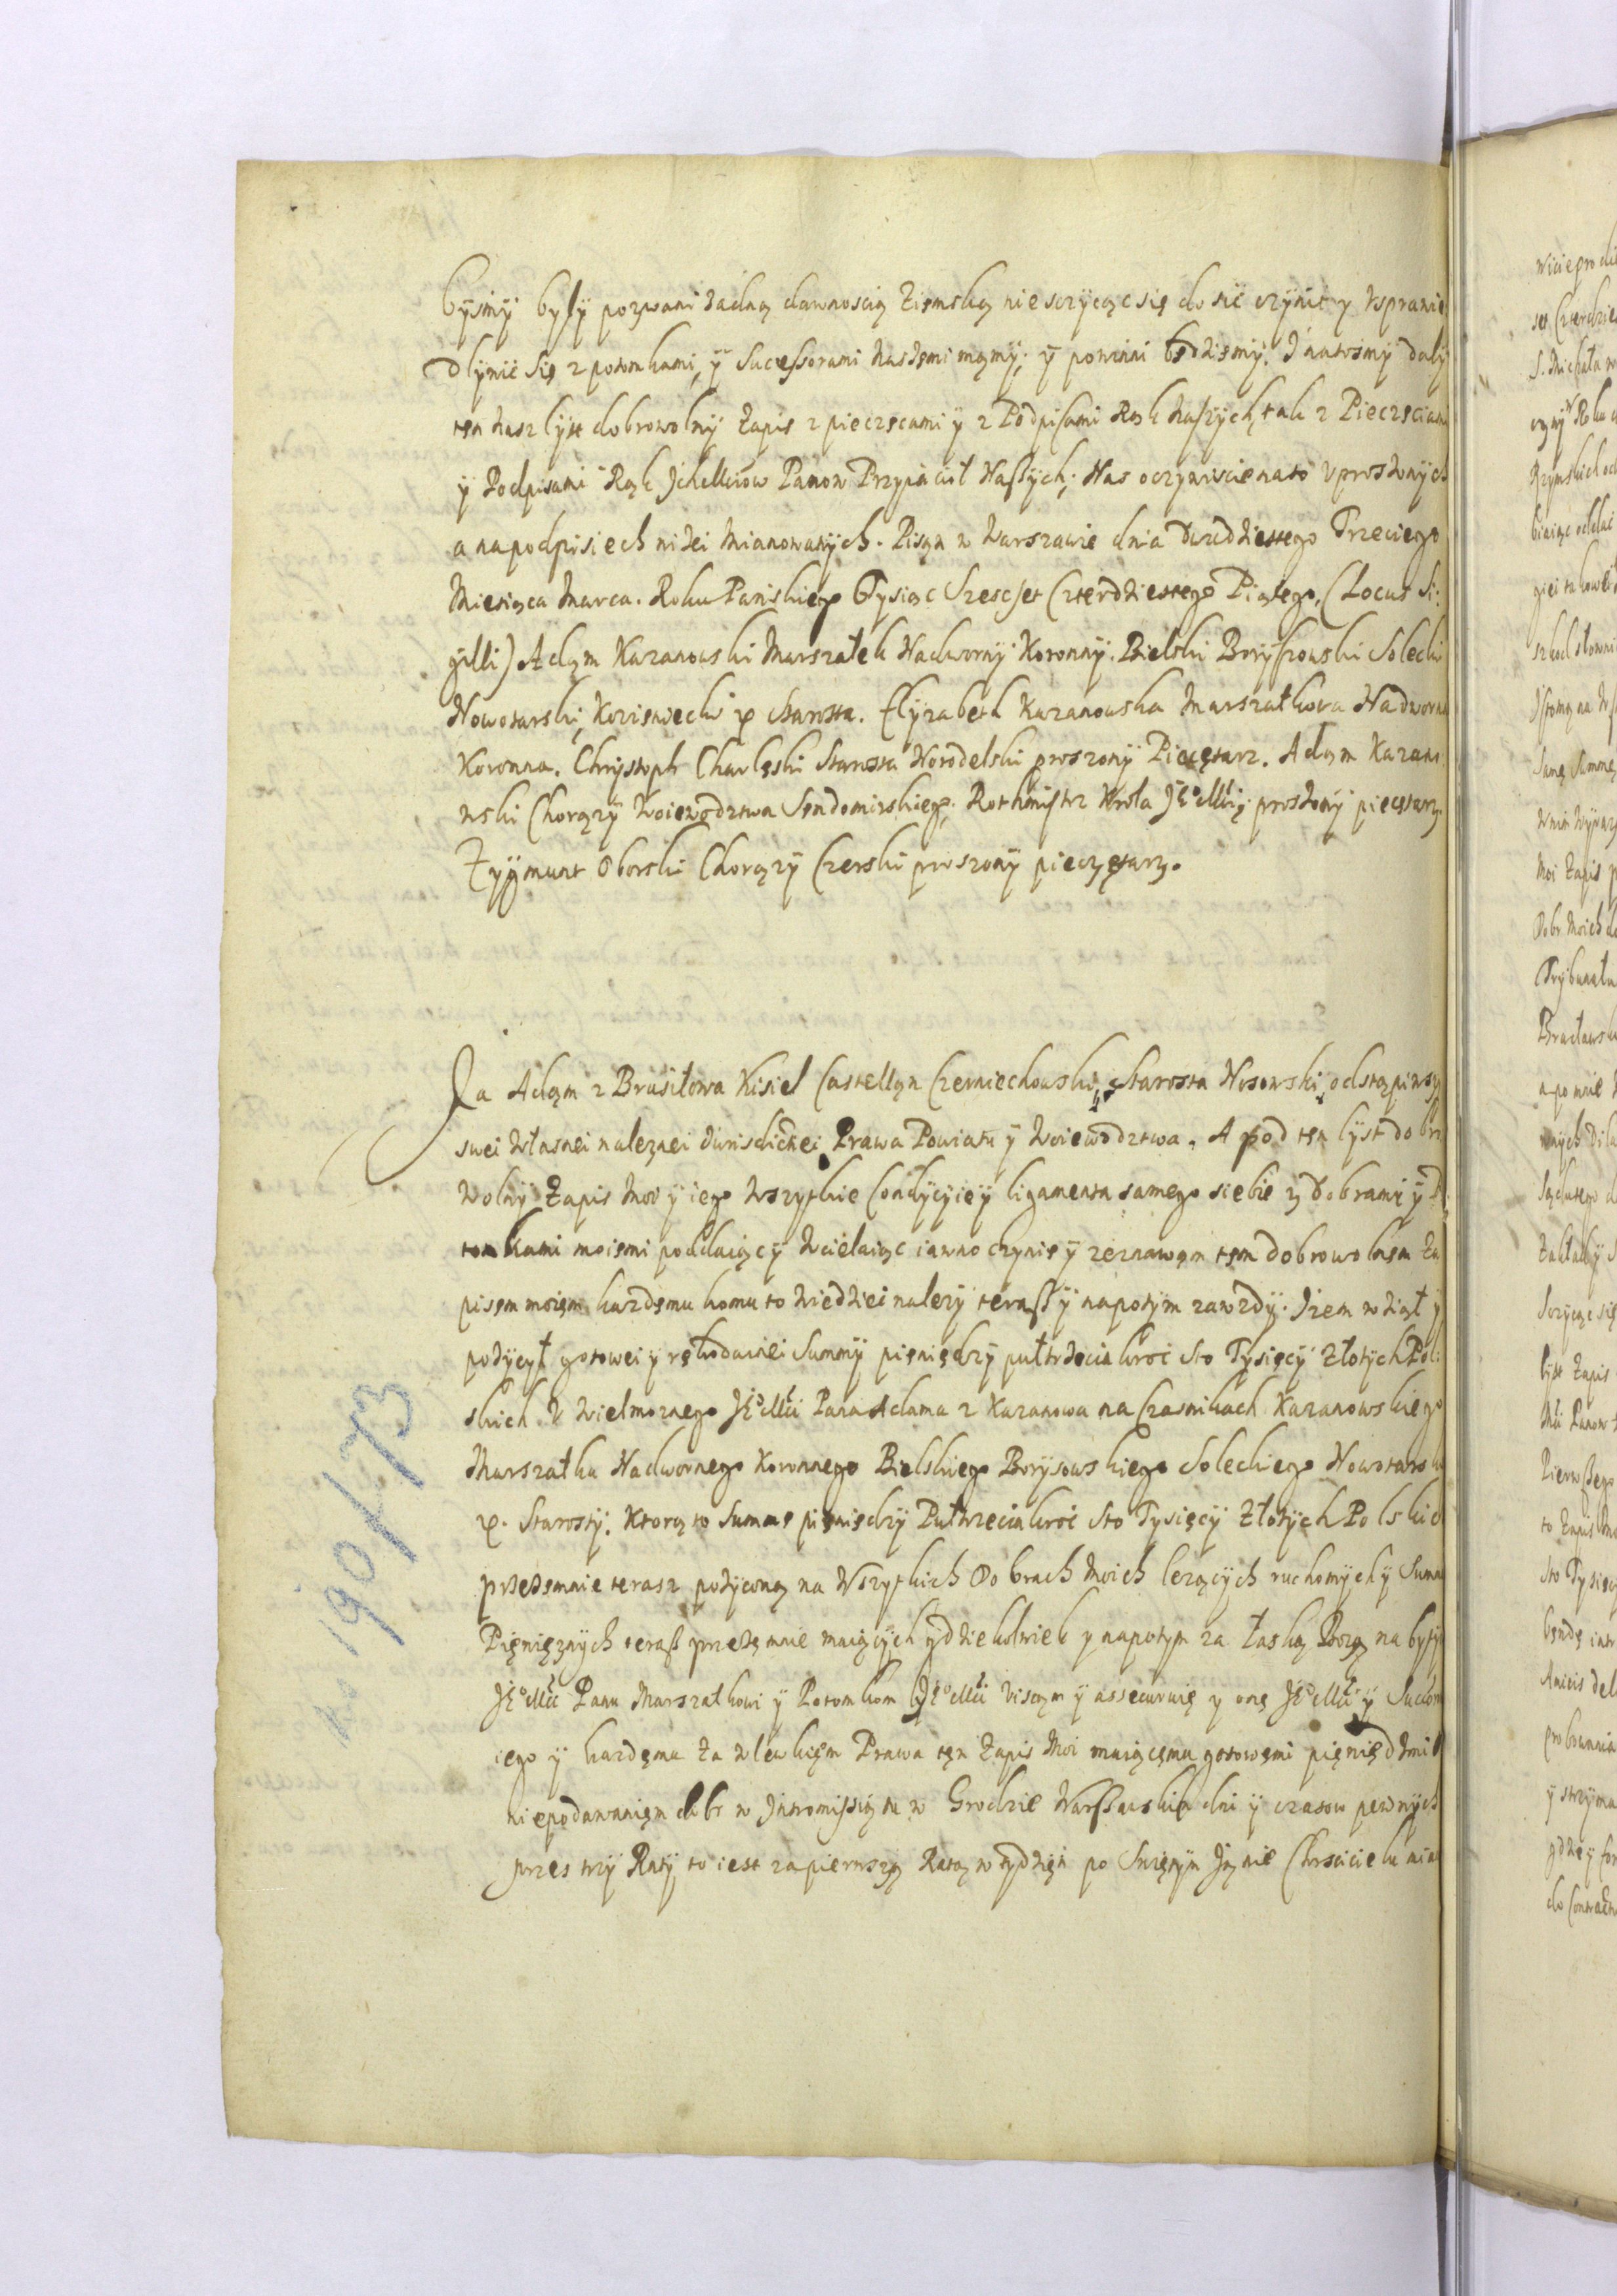 byśmy były pozwani żadną dawnoscią Ziemską nieszczycąc się dosić czynić y Vsprawie
dlywić się z potomkami, y Sucessorami naszemi mąmy, y powinni będziemy. I natośmy daly
ten nasz lyst dobrowolny Zapis z pieczęcami y z Podpisami Rąk Naszych, tak z Pieczęciami
y Podpisami Rąk Ichmciow Panow Przyiaciół Naszych; Nas oczywiscie nato vproszonych
a napodpisiech niżei mianowanych. Pisąn w Warszawie dnia dwudziestego Trzeciego
Miesiąca Marca. Roku Pańskiego Tysiąc Szescset Czterdziestego Piątego. (Locus Si:
gilli) Adąm Kazanowski Marszałek Nadworny Koronny. Bielski Borysowski Solecki
Nowotarski, Kozienecki p Starosta. Elyzabeth Kazanowska Marszałkowa Nadworna
Koronna. Chrystoph Charlęski Starosta Horodelski proszony Pieczętarz. Adąm Kazano
wski Chorąży Woiewodztwa Sendomirskiego, Rothmistrz Krola Je° Mći proszony pieczętarz.
Zygmunt Oborski Chorąży Czerski proszony pieczętarz.
Ja Adąm z Brusiłowa Kisiel Castelląn Czerniechowski, Starosta Nosowski odstąpiwszy
swei własnei należnei Jurisdictiei Prawa Powiatu y Woiewodztwa. A pod ten lyst dobro
wolny Zapis Moi y iego Wszytkie Condycyie y ligamenta samego siebie z dobrami y Po
tomkami moiemi poddaiąc y wcielaiąc iawno czynię y zeznawąm tem dobrowolnem Za
pisem moiem kazdemu komu to wiedziei należy terasz y napotym zawzdy. Iżem wziął y
pożyczył gotowei y rękodainei Summy pieniędzy pułtrzeciakroć Sto Tysięcy Złotych Pol
skich V Wielmożnego Je° Mći Pana Adama z Kazanowa na Czasnikach Kazanowskiego
Marszałka Nadwornego Koronnego Bielskiego Borysowskiego Soleckiego Nowotarsk
p. Starosty. Ktorą to Summę pieniędzy Pułtrzeciakroć Sto Tysięcy Złotych Polskich
przezemnie terasz pożyczoną na Wszytkich Dobrach Moich leżących ruchomych y Summ
Pieniężnych terasz przezemnie maiących gdziekolwiek y napotym za łaską Bożą nabyty
Je° Mći Panu Marszałkowi y Potomkom Je° Mći Viszczam y assecuruię y onę Je° Mći y Sukcess
iego y każdemu za wlewkiem Prawa ten Zapis Moi maiącemu gotowemi pieniędzmi
niepodawaniem dobr w Intromissią tu w Grodzie Warszawskim dni y czasow pewnych
przes trzy Raty, to iest zapierwszą Ratą w tydzień po Swiętym Iąnie Chrzcicielu
N° 190/73